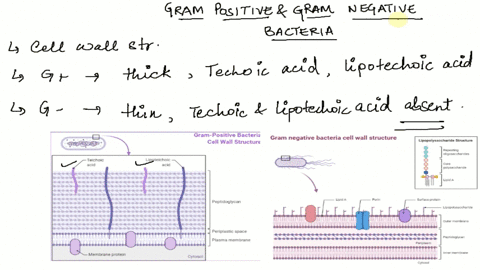 GRAM POSITIVE & GRAM NEGATIVE
BACTERIA
↳ Cell wall str.
↳ G+ → thick, Techoic acid, lipotechoic acid
↳ G- → thin, Techoic & lipotechoic acid absent.
Gram-Positive Bacteria
Cell Wall Structure
Teichoic
acid
Lipoteichoic
acid
Peptidoglycan
Periplasmic space
Plasma membrane
Membrane protein
Cytosol
Gram negative bacteria cell wall structure
Porin
Surface protein
Lipopolysaccharide
Outer membrane
Peptidoglycan
Inner membrane
Lipopolysaccharide Structure